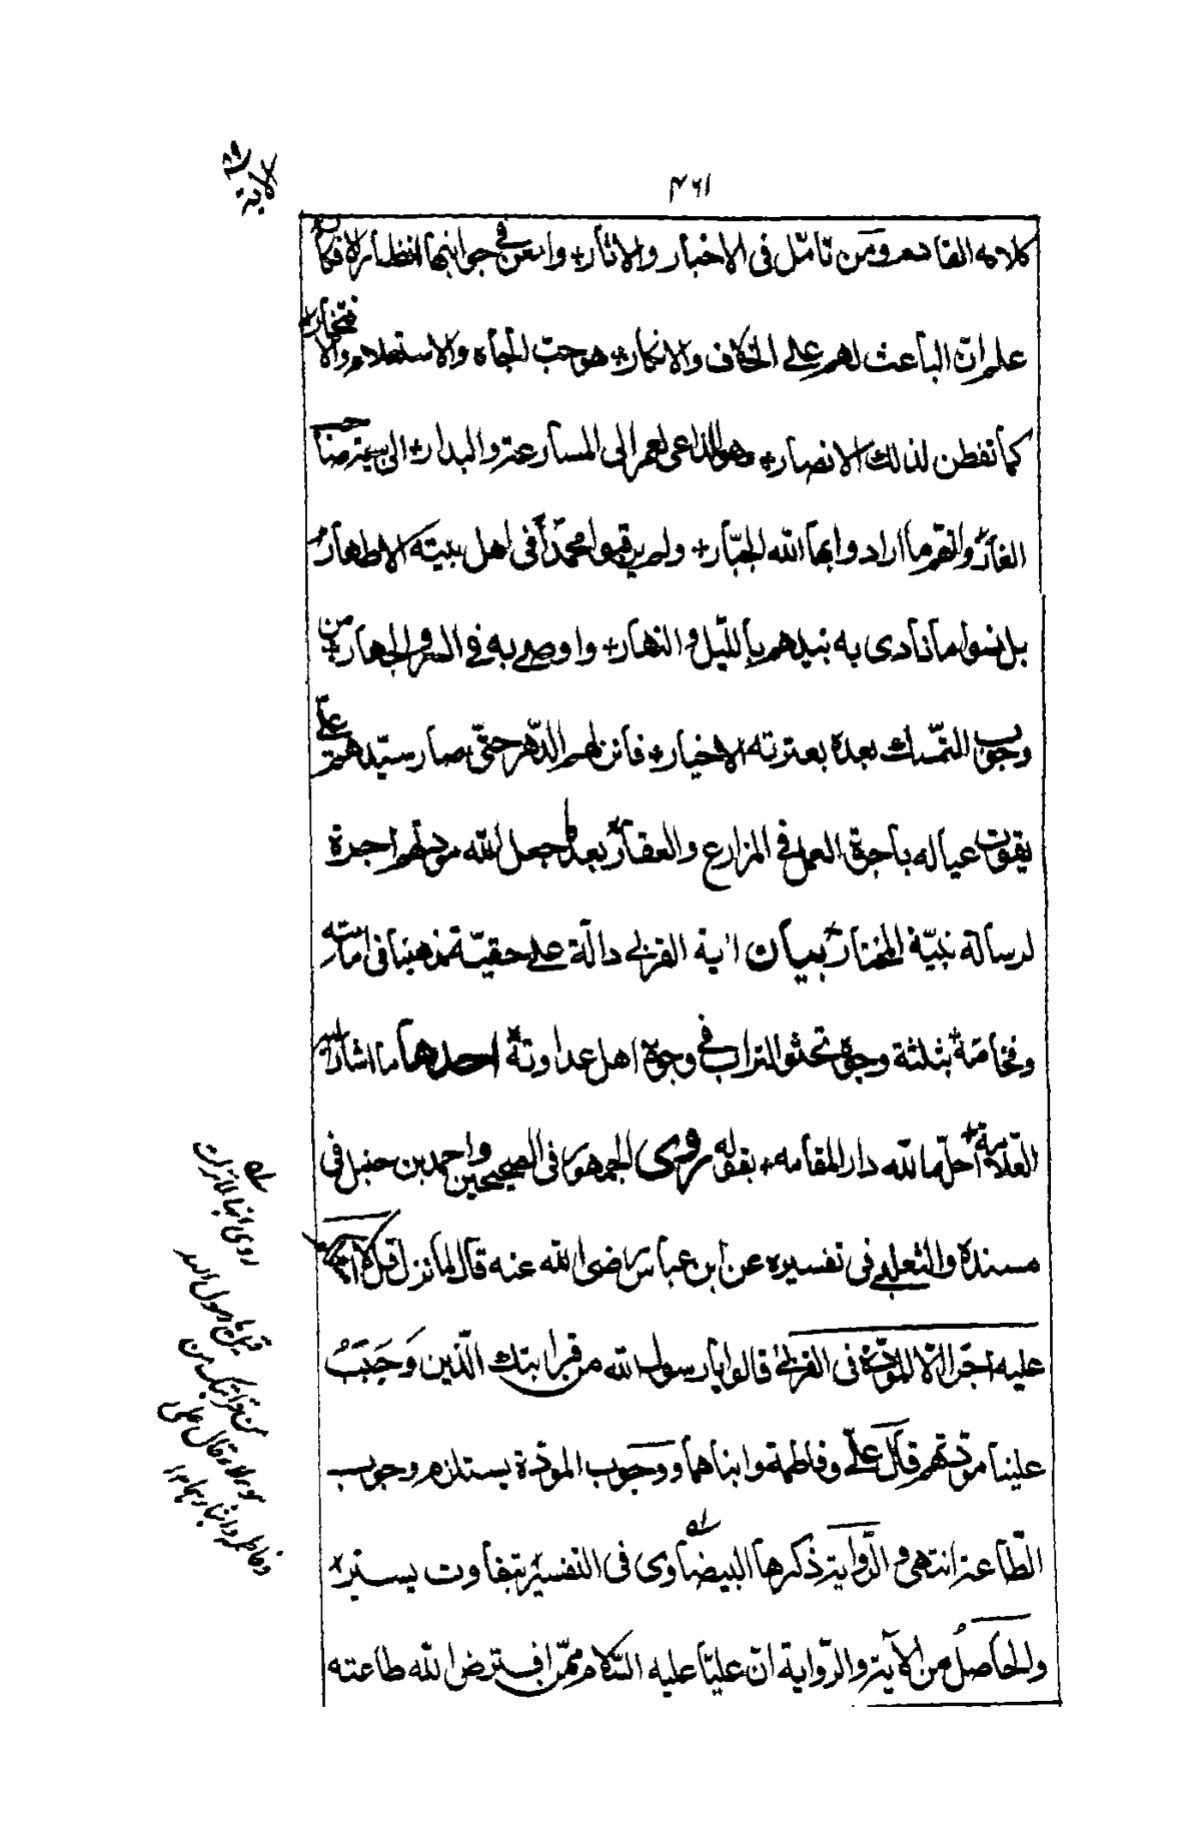 ٤٦١
كلامه القادم ومن تأمّل فى الاخبار والاثار وامعن فى جوانبها انظاره لافكار
علم ان الباعث لهم على الخلاف والانكار هو حبّ الجاه والاستعلاء والافتخار
كما تفطن لذلك الانصار وهو الداعى لهم الى المسارعة والبدار الى
الغار وانهم ما ارادوا بها الله الجبّار ولم يرقبوا محمّدًا فى اهل بيته الاطهار
بل نسوا ما نادى به نبيهم بالليل والنهار واوصى به فى السر والجهار من
وجوب التمسك بعده بعترته الاخيار لهم الدّهر حتّى صار سيّدهم علىّ
يقوت عياله باجرة العمل فى المزارع والعقار بعد ما جعل الله مودتهم اجرة
لرسالة نبيّه المختار بيان اية القربى دالّة على حقيّة مذهبنا فى امامته
وفخامته بثلثة وجوه تحثو التراب فى وجوه اهل عداوته احدها ما اشار اليه
العلّامة احلّه الله دار المقامه بقوله روى الجمهور فى الصحيحين واحمد بن حنبل فى
مسنده والثعلبى فى تفسيره عن ابن عباس رضى الله عنه قال لما نزل قل لا اسئلكم
عليه اجرا الا المودّة فى القربى قالوا يا رسول الله من قرابتك الّذين وَجَبَتْ
علينا مودّتهم قال علىّ وفاطمة وابناهما ووجوب المودّة يستلزم وجوب
الطّاعة انتهى والرّواية ذكرها البيضاوى فى التفسير بتفاوت يسير
والحاصل من الآية والرّواية انّ عليّا عليه السّلام ممّن افترض الله طاعته
روى انها لما نزلت
قيل يا رسول الله
من قرابتك من
هؤلاء قال على
وفاطمة وابناهما ١٢